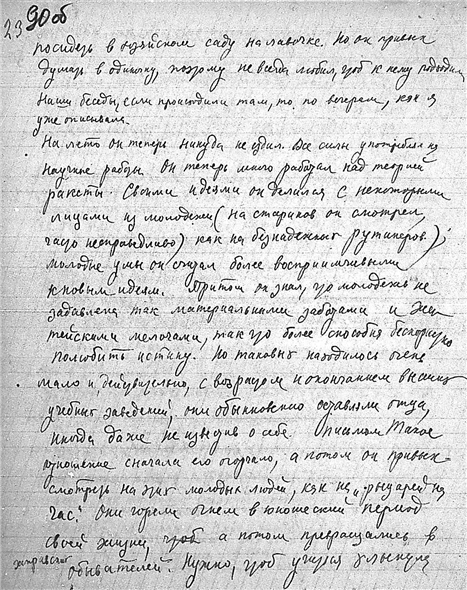 23 30 об
посидеть в музейском саду на лавочке. Но он привык
думать в одиночку, поэтому не всегда любил, чтоб к нему подходили
Наши беседы, если происходили там, то по вечерам, как я
уже описывала.
На лето он теперь никуда не ездил. Все силы употреблял на
научные работы. Он теперь много работал над теорией
ракеты. Своими идеями он делился с некоторыми
лицами из молодежи (на стариков он смотрел,
часто несправедливо) как на безнадежных рутинеров.);
молодые умы он считал более восприимчивыми
к новым идеям. Притом он знал, что молодежь не
задавлена так материальными заботами и жи
тейскими мелочами, так что более способна бескорыстно
полюбить истину. Но таковых находилось очень
мало и действительно, с возрастом и окончанием высших
учебных заведений, они обыкновенно оставляли отца,
иногда даже не известив о себе письмом. Такое
отношение сначала его огорчало, а потом он привык
смотреть на этих молодых людей, как на „рыцарей на
час." Они горели огнем в юношеский период
своей жизни, чтоб а потом превращались в
обывателей. Нужно, чтоб